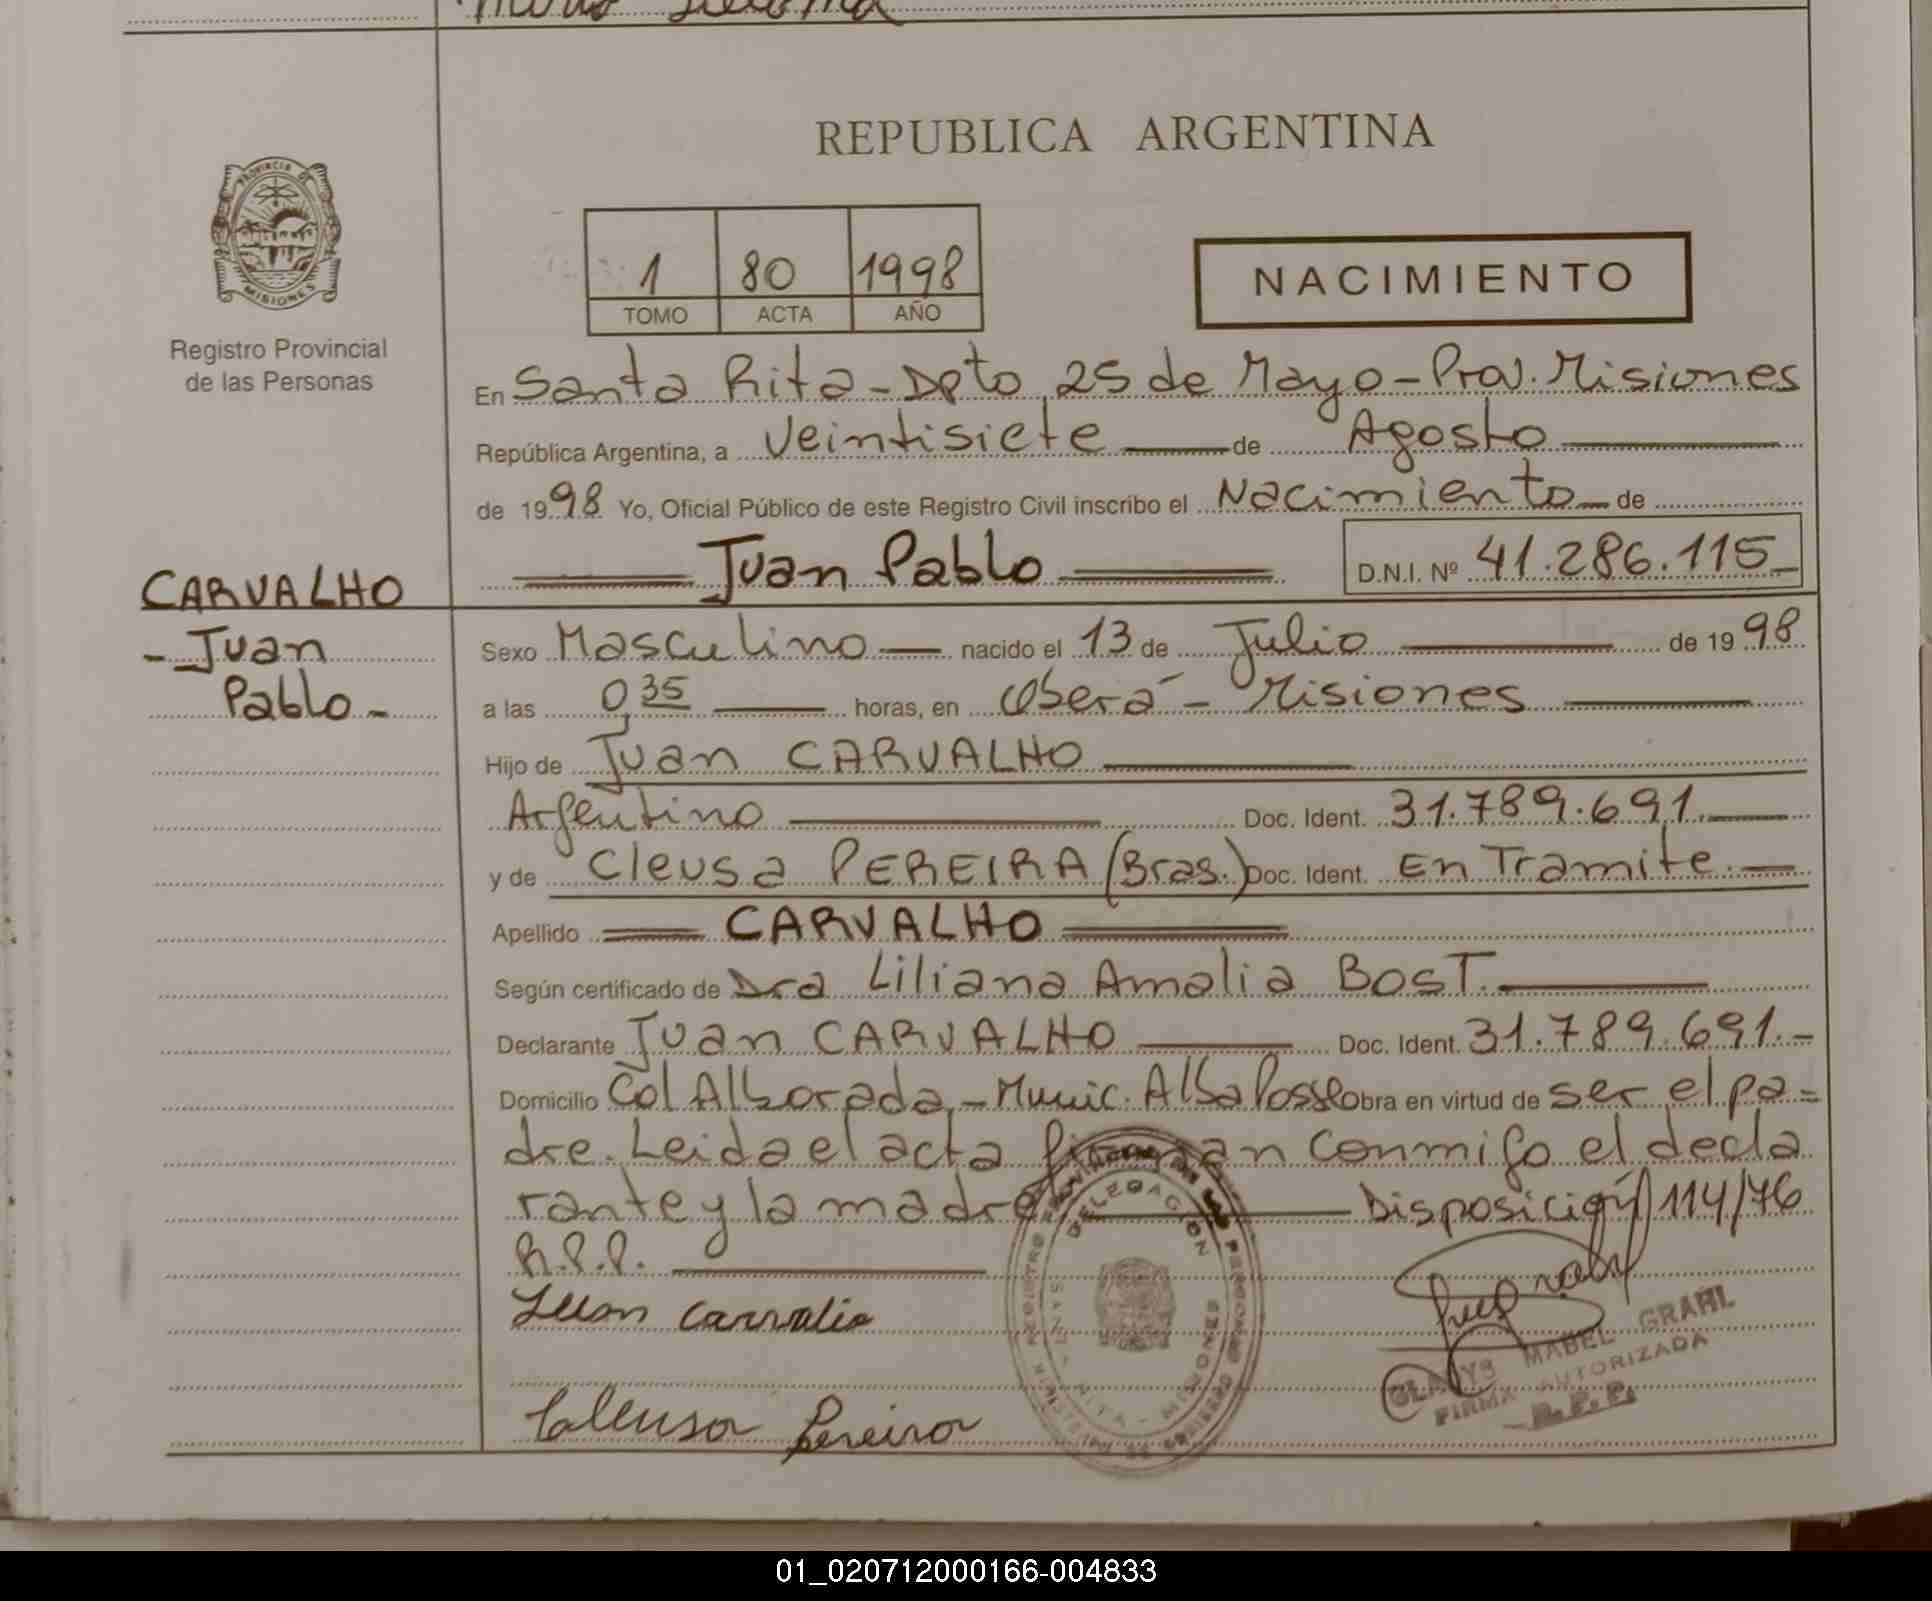 REPUBLICA ARGENTINA
PROVINCIA DE
MISIONES
Registro Provincial
de las Personas
1 80 1998
TOMO ACTA AÑO
NACIMIENTO
En Santa Rita - Dpto 25 de Mayo - Prov. Misiones
República Argentina, a Veintisiete de Agosto
de 1998 Yo, Oficial Público de este Registro Civil inscribo el Nacimiento de
Juan Pablo D.N.I. Nº 41.286.115
CARVALHO
- Juan
Pablo -
Sexo Masculino nacido el 13 de Julio de 1998
a las 0,35 horas, en Oberá - Misiones
Hijo de Juan CARVALHO
Argentino Doc. Ident. 31.789.691.
y de Cleusa PEREIRA (Bras.) Doc. Ident. En Tramite.
Apellido CARVALHO
Según certificado de Dra Liliana Amalia BOST.
Declarante Juan CARVALHO Doc. Ident. 31.789.691.-
Domicilio Col Alborada - Munic. Alba Posse Obra en virtud de ser el pa=
dre. Leida el acta firman conmigo el decla
rante y la madre Disposición 114/76
R.P.P.
Juan Carvalho
Cleusa Pereira
DELEGACION
SANTA RITA - MISIONES
GLADYS MABEL GRAHL
FIRMA AUTORIZADA
R.P.P.
01_020712000166-004833